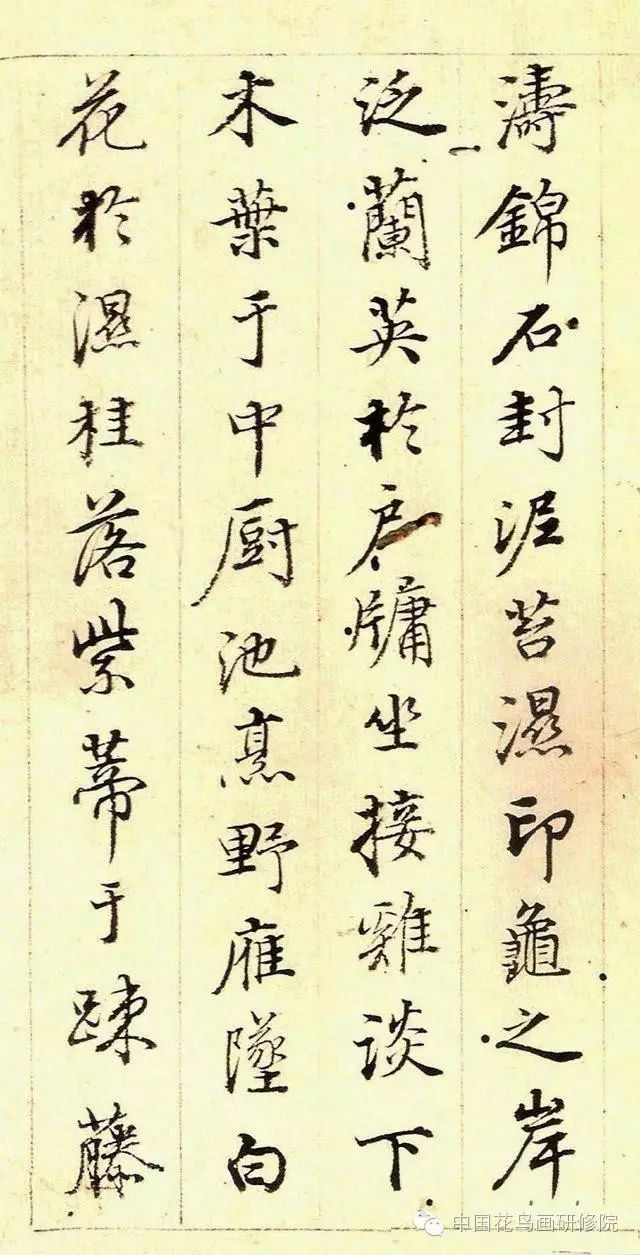 濤錦石封泥苔濕印龜之岸
泛蘭英於戶牖坐接雞談下
木葉于中厨池烹野雁墜白
花於濕桂落紫蔕于踈藤
中国花鸟画研修院